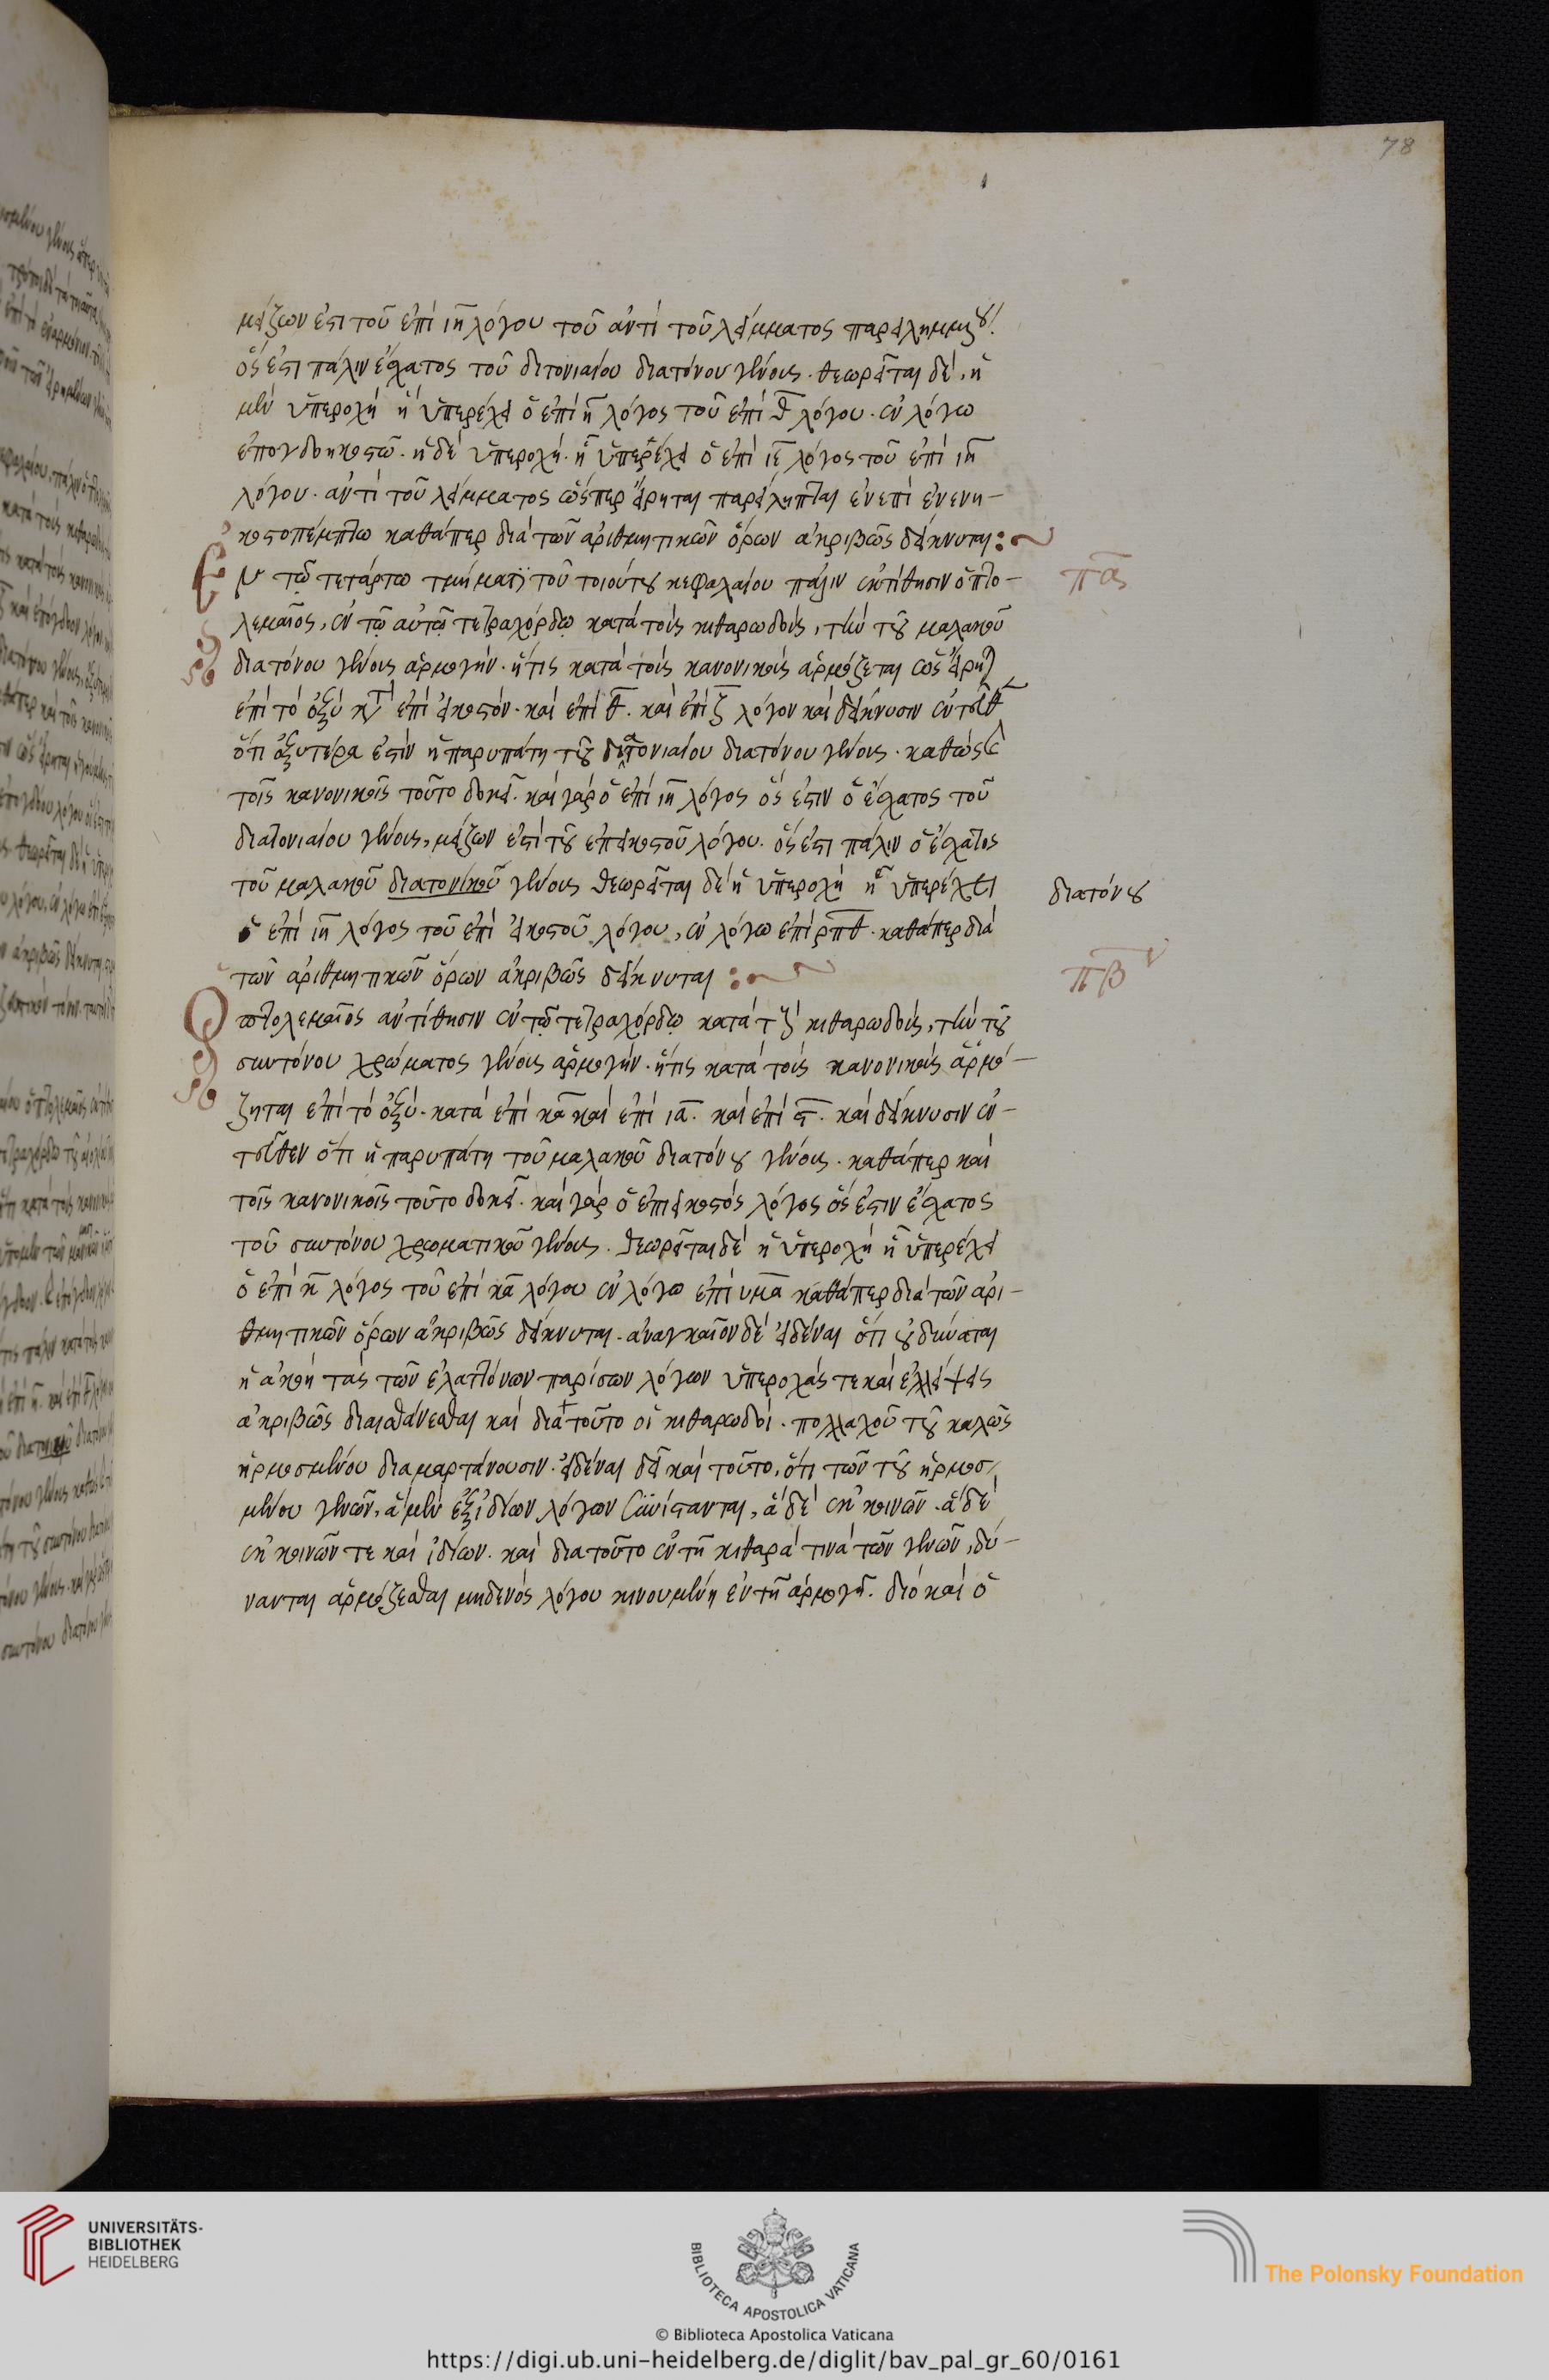 78
μείζων ἐστὶ τοῦ ἐπὶ ιη λόγου τοῦ ἀντὶ τοῦ λείμματος παρειλημμένου.
ὅς ἐστι πάλιν ἔσχατος τοῦ διτονιαίου διατόνου γένους. θεωρεῖται δὲ, ἡ
μὲν ὑπεροχὴ ᾗ ὑπερέχει ὁ ἐπὶ η λόγος τοῦ ἐπὶ θ λόγου. ἐν λόγω
ἐπογδοηκοστῶ. ἡ δὲ ὑπεροχὴ. ᾗ ὑπερέχει ὁ ἐπὶ ιε λόγος τοῦ ἐπὶ ιη
λόγου. ἀντὶ τοῦ λείμματος ὥσπερ εἴρηται παρείληπται ἐν ἐπὶ ἐνενη-
κοστοπέμπτω καθάπερ διὰ τῶν ἀριθμητικῶν ὅρων ἀκριβῶς δείκνυται:~
Ἐν τῷ τετάρτω τμήματϊ τοῦ τοιούτου κεφαλαίου πάλιν ἐκτίθησιν ὁ πτο-
πα
λεμαῖος, ἐν τῷ αὐτῷ τετραχόρδῳ κατὰ τοὺς κιθαρωδοὺς, τὴν τοῦ μαλακοῦ
διατόνου γένους ἁρμογὴν. ἥτις κατὰ τοὺς κανονικοὺς ἁρμόζεται ὡς εἴρηται
ἐπὶ τὸ ὀξὺ κατὰ ἐπὶ εἰκοστὸν. καὶ ἐπὶ θ. καὶ ἐπὶ ζ λόγον καὶ δείκνυσιν ἐντεῦθεν
ὅτι ὀξυτέρα ἐστὶν ἡ παρυπάτη τοῦ διατονιαίου διατόνου γένους. καθὼς καὶ
τοῖς κανονικοῖς τοῦτο δοκεῖ. καὶ γὰρ ὁ ἐπὶ ιη λόγος ὅς ἐστιν ὁ ἔσχατος τοῦ
διατονιαίου γένους, μείζων ἐστὶ τοῦ ἐπεικοστοῦ λόγου. ὅς ἐστι πάλιν ὁ ἔσχατος
τοῦ μαλακοῦ διατονικοῦ γένους θεωρεῖται δὲ ἡ ὑπεροχὴ ᾗ ὑπερέχει
διατόνου
ὁ ἐπὶ ιη λόγος τοῦ ἐπὶ εἰκοστοῦ λόγου, ἐν λόγω ἐπὶ ρπθ. καθάπερ διὰ
τῶν ἀριθμητικῶν ὅρων ἀκριβῶς δείκνυται:~
πβ
Ὁ πτολεμαῖος ἀντίθησιν ἐν τῷ τετραχόρδῳ κατὰ τοὺς κιθαρωδοὺς, τὴν τοῦ
συντόνου χρώματος γένους ἁρμογὴν. ἥτις κατὰ τοὺς κανονικοὺς ἁρμό-
ζηται ἐπὶ τὸ ὀξὺ. κατὰ ἐπὶ κα καὶ ἐπὶ ια. καὶ ἐπὶ ϛ. καὶ δείκνυσιν ἐν-
τεῦθεν ὅτι ἡ παρυπάτη τοῦ μαλακοῦ διατόνου γένους. καθάπερ καὶ
τοῖς κανονικοῖς τοῦτο δοκεῖ. καὶ γὰρ ὁ ἐπιεικοστὸς λόγος ὅς ἐστιν ἔσχατος
τοῦ συντόνου χρωματικοῦ γένους. θεωρεῖται δὲ ἡ ὑπεροχὴ ᾗ ὑπερέχει
ὁ ἐπὶ κ λόγος τοῦ ἐπὶ κα λόγου ἐν λόγω ἐπὶ υμα καθάπερ διὰ τῶν ἀρι-
θμητικῶν ὅρων ἀκριβῶς δείκνυται. ἀναγκαῖον δὲ εἰδέναι ὅτι οὐ δύναται
ἡ ἀκοὴ τὰς τῶν ἐλαττόνων παρίσων λόγων ὑπεροχάς τε καὶ ἐλλείψεις
ἀκριβῶς διαισθάνεσθαι καὶ διὰ τοῦτο οἱ κιθαρωδοὶ. πολλαχοῦ τοῦ καλῶς
ἡρμοσμένου διαμαρτάνουσιν. εἰδέναι δεῖ καὶ τοῦτο, ὅτι τῶν τοῦ ἡρμοσ
μένου γενῶν, ἃ μὲν ἐξ ἰδίων λόγων συνίστανται, ἃ δὲ ἐκ κοινῶν. ἃ δὲ
ἐκ κοινῶν τε καὶ ἰδίων. καὶ διατοῦτο ἐν τῇ κιθάρα τινὰ τῶν γενῶν, δύ-
νανται ἁρμόζεσθαι μηδενὸς λόγου κινουμένη ἐν τῇ ἁρμογῇ. διὸ καὶ ὁ
UNIVERSITÄTS-
BIBLIOTHEK
HEIDELBERG
BIBLIOTECA APOSTOLICA VATICANA
The Polonsky Foundation
© Biblioteca Apostolica Vaticana
https://digi.ub.uni-heidelberg.de/diglit/bav_pal_gr_60/0161